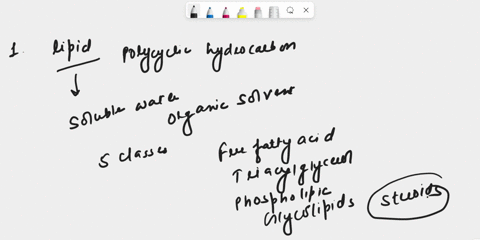 1. lipid polycyclic hydrocarbon
Soluble water
organic solvent
5 classes
Free fatty acid
Triacylglycerol
Phospholipic
Glycolipids
Steroids